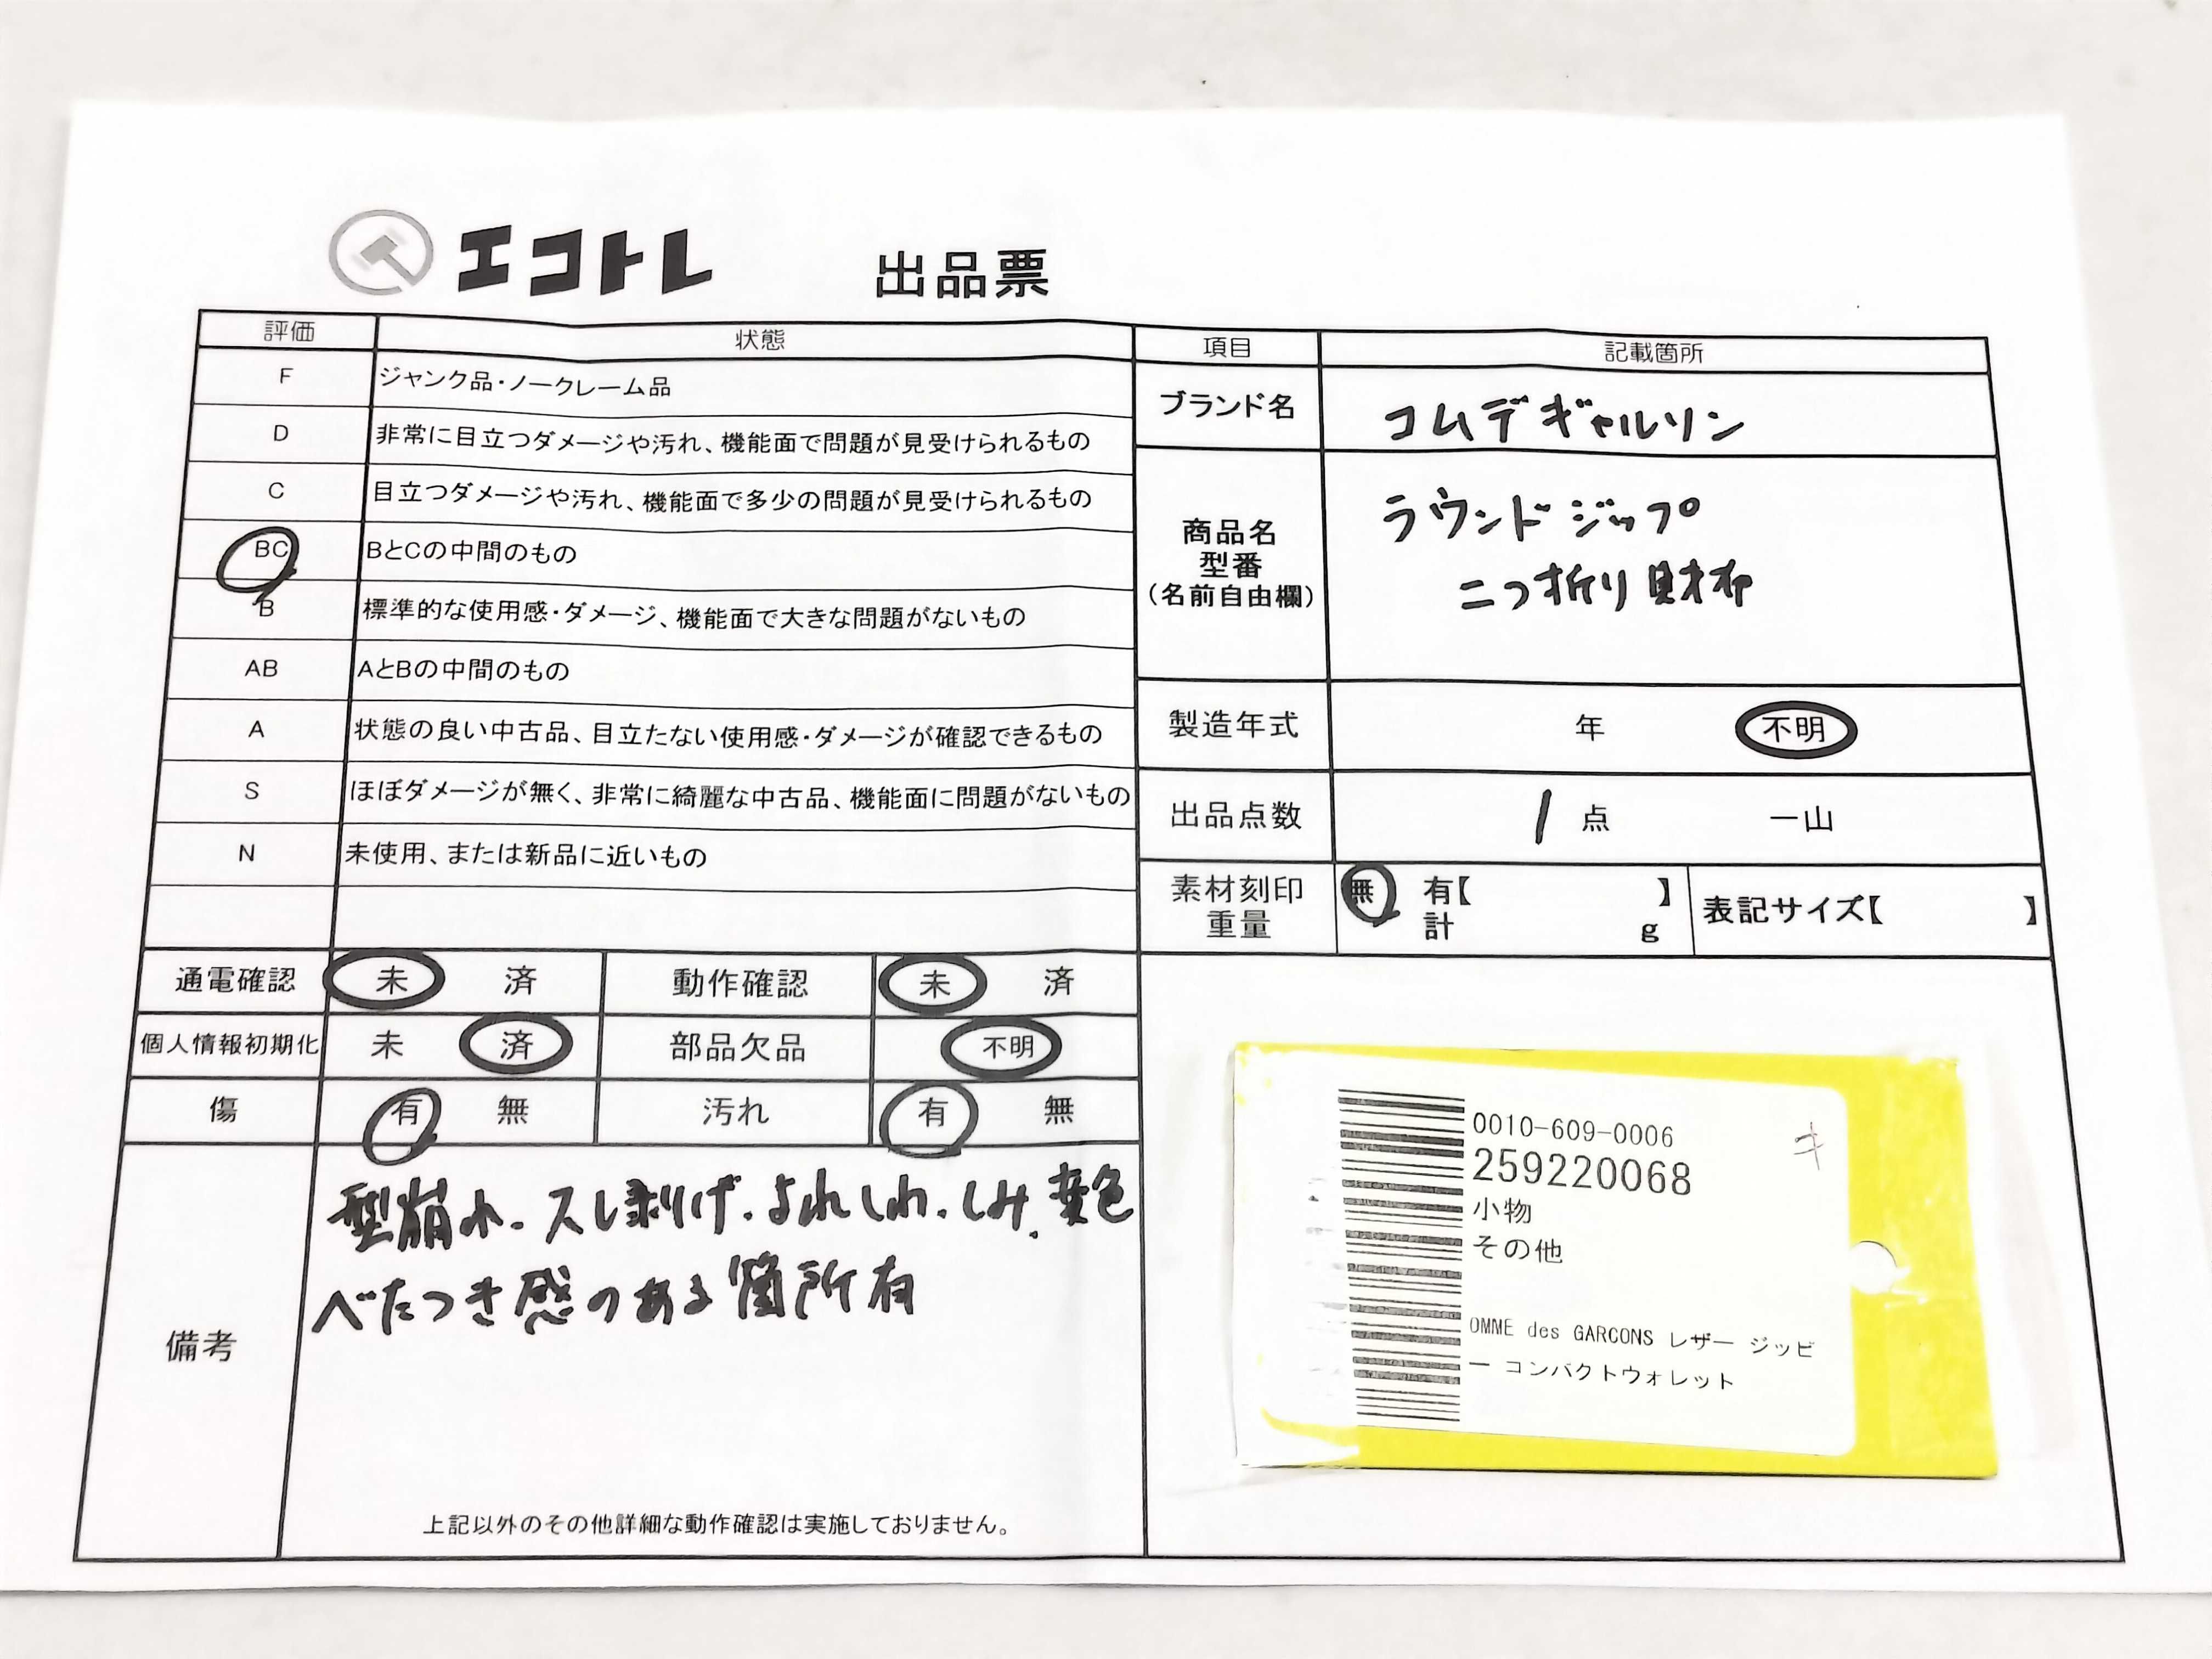 エコトレ 出品票
評価 状態
F ジャンク品・ノークレーム品
D 非常に目立つダメージや汚れ、機能面で問題が見受けられるもの
C 目立つダメージや汚れ、機能面で多少の問題が見受けられるもの
BC BとCの中間のもの
B 標準的な使用感・ダメージ、機能面で大きな問題がないもの
AB AとBの中間のもの
A 状態の良い中古品、目立たない使用感・ダメージが確認できるもの
S ほぼダメージが無く、非常に綺麗な中古品、機能面に問題がないもの
N 未使用、または新品に近いもの
通電確認 未 済 動作確認 未 済
個人情報初期化 未 済 部品欠品 不明
傷 有 無 汚れ 有 無
備考
型崩れ.スレ剥げ.よれしわ.しみ.変色
べたつき感のある箇所有
上記以外のその他詳細な動作確認は実施しておりません。
項目 記載箇所
ブランド名 コムデギャルソン
商品名
型番
(名前自由欄)
ラウンドジップ
二つ折り財布
製造年式 年 不明
出品点数 1 点 一山
素材刻印
重量
無 有【 】
計 g
表記サイズ【 】
0010-609-0006
259220068
キ
小物
その他
OMME des GARCONS レザー ジッピ
ー コンパクトウォレット